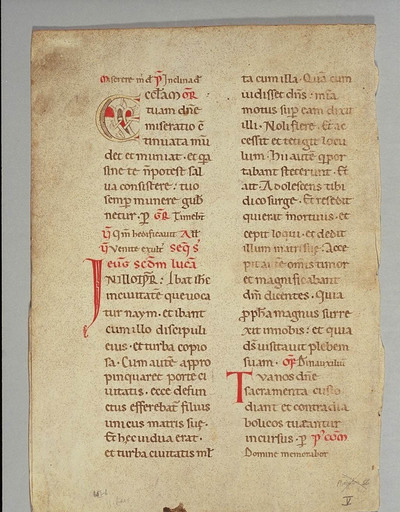 Miserere m d P Inclina d
Ecclam
tuam dne
miseratio c
tinuata mu
det et muniat · et qa
sine te n potest sal
ua consistere · tuo
semp munere gub
netur · p GR Timebt
V Qm hedificauit All
V Venite exult SEQ S
IEUG SCDM LUCA
IN ILLO TPR : Ibat ihc
in ciuitate que uoca
tur naym · et ibant
cum illo discipuli
eius · et turba copio
sa · Cum aute appro
pinquaret porte ci
uitatis · ecce defun
ctus efferebat filius
unicus matris sue ·
Et hec uidua erat ·
et turba ciuitatis ml
ta cum illa · Qua cum
uidisset dns : mia
motus sup eam dixit
illi · Noli flere · Et ac
cessit et tetigit locu
lum · Hii aute q por
tabant steterunt · Et
ait · Adolescens tibi
dico surge · Et resedit
qui erat mortuus · et
cepit loqui · et dedit
illum matri sue · Acce
pit aute omis timor
et magnificabant
dm dicentes · Quia
ppha magnus surre
xit in nobis : et quia
ds uisitauit plebem
suam · OF Dm auxiliu
Tua nos dne
sacramenta custo
diant et contra dia
bolicos tueantur
incursus · p P COM
Domine memorabor
V